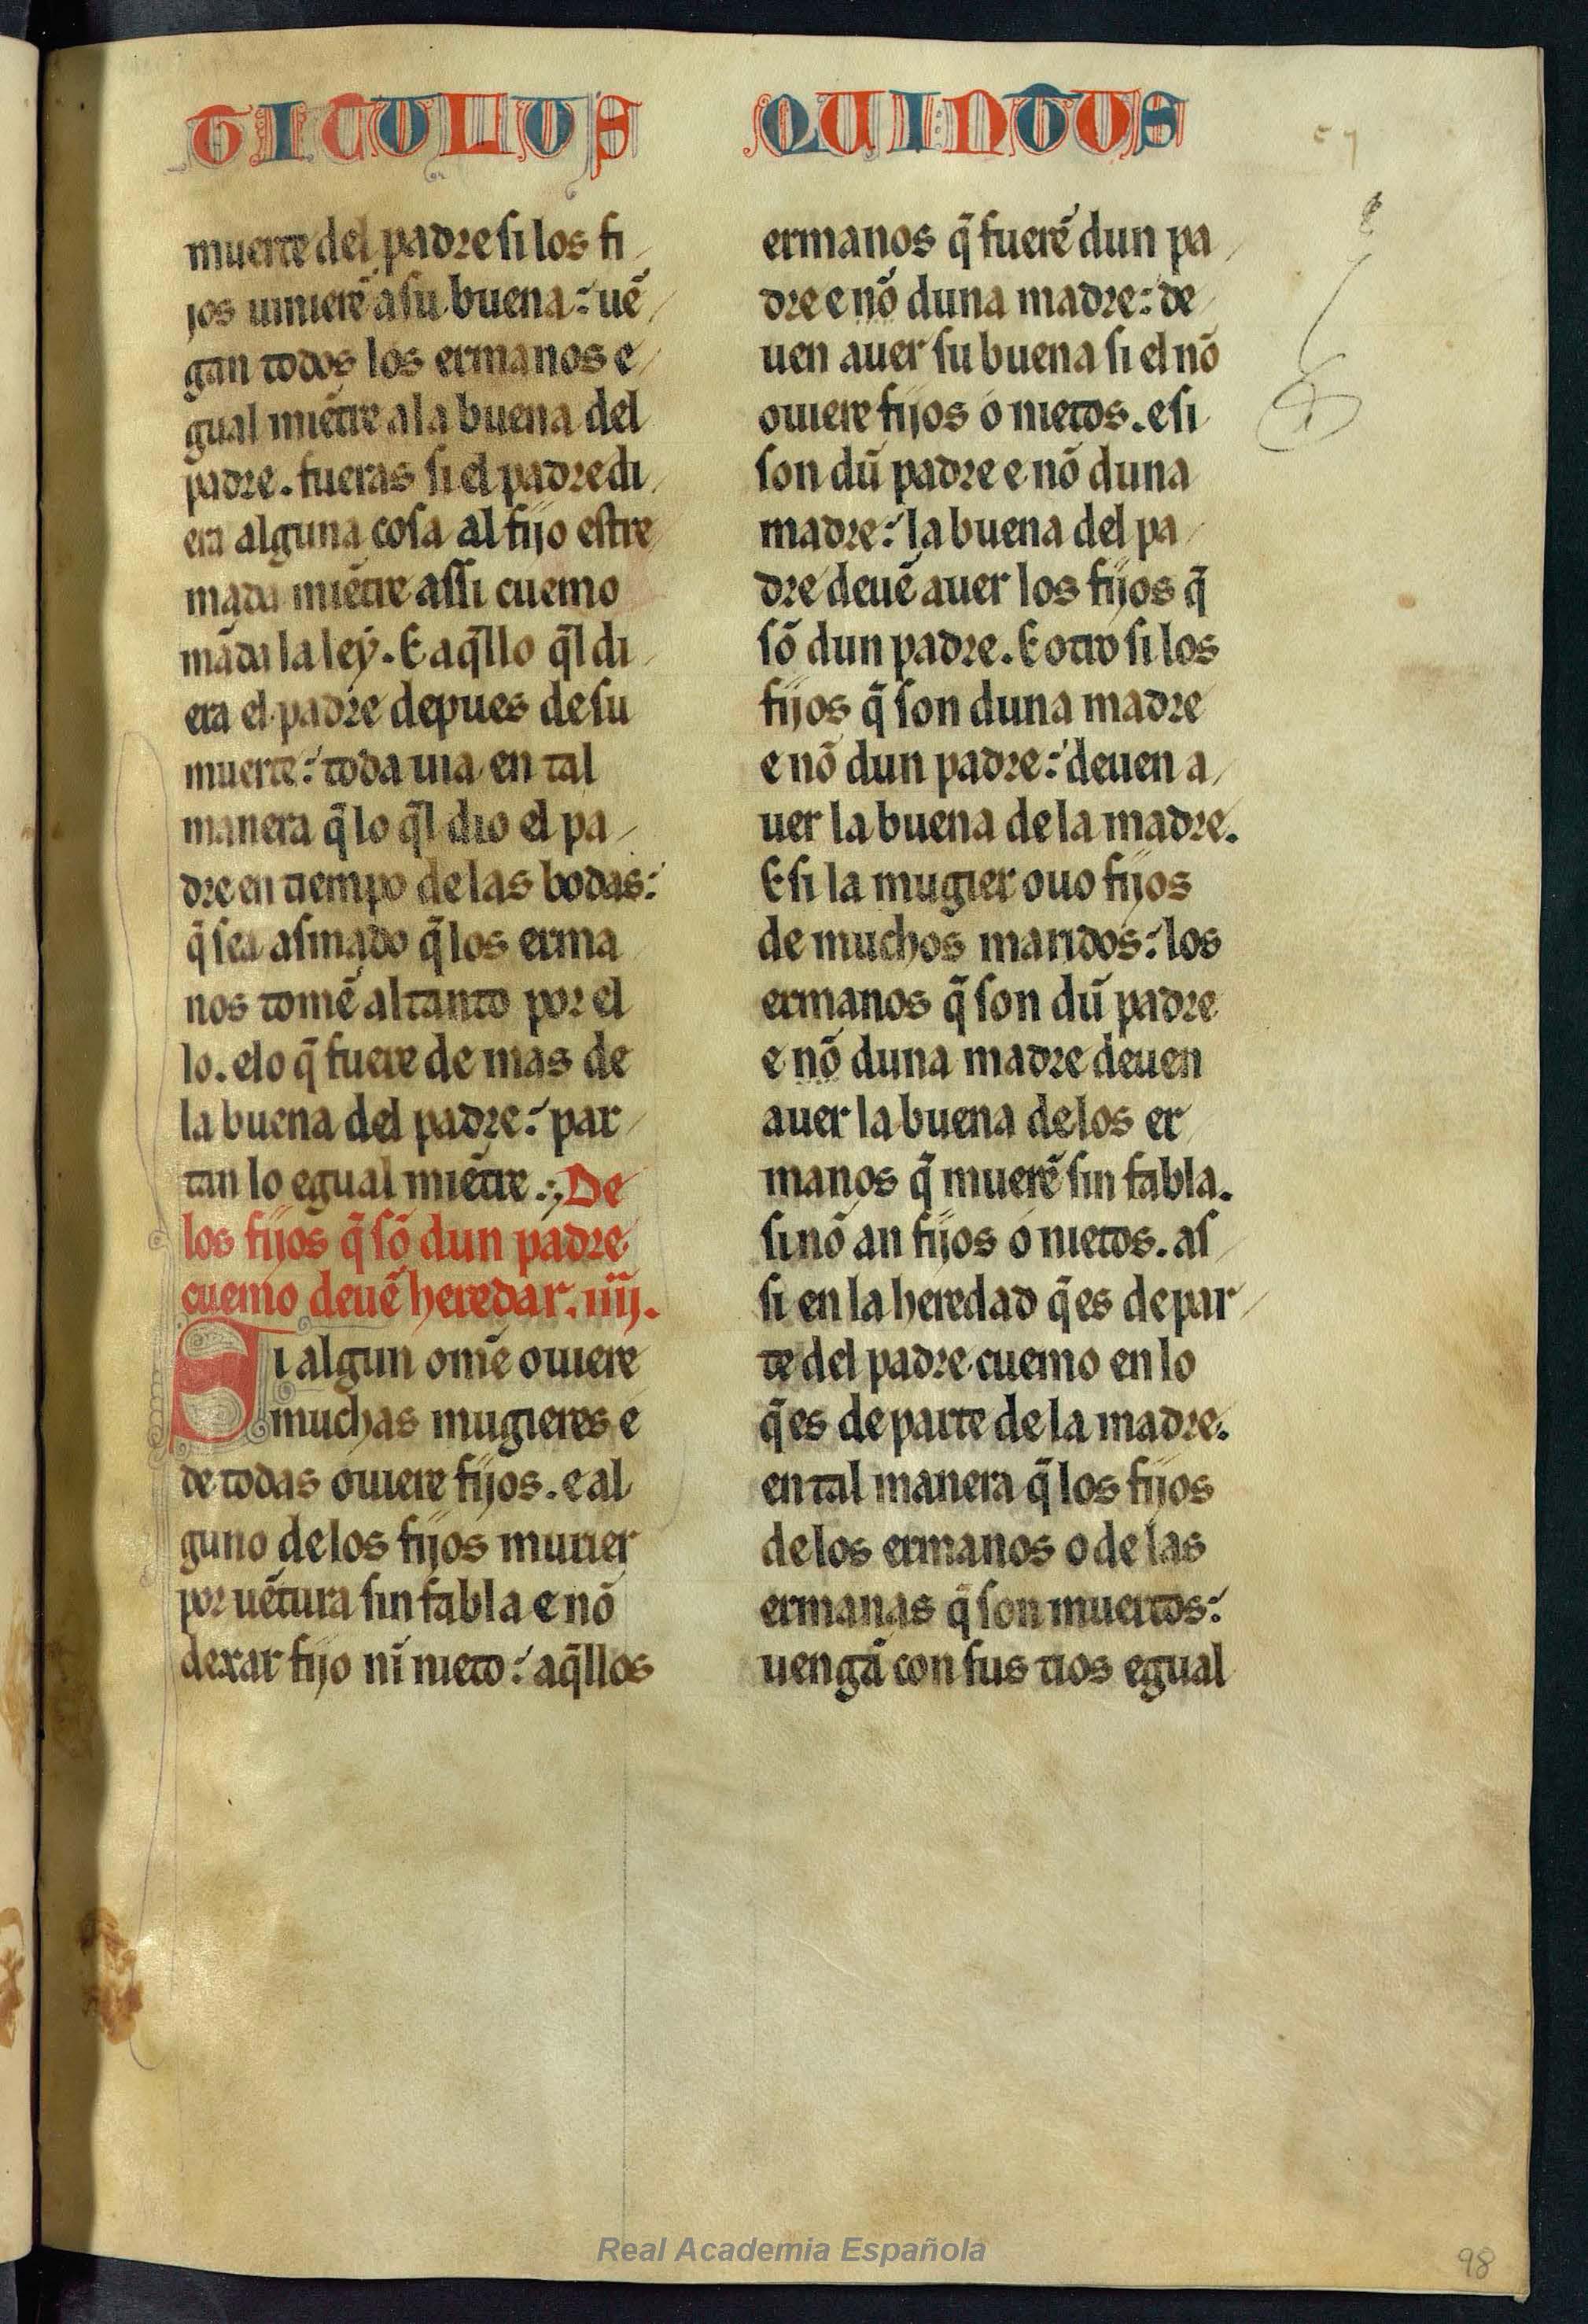 TITULUS QUINTUS
muerte del padre si los fi
jos uinierē asu buena: uē
gan todos los ermanos e
gual miētre ala buena del
padre. fueras si el padre di
era alguna cosa al fijo estre
mada miētre assi cuemo
māda la ley. E aq̄llo q̄l di
era el padre depues de su
muerte: toda uia en tal
manera q̄ lo q̄l dio el pa
dre en tiempo de las bodas:
q̄ sea asmado q̄ los erma
nos tomē altanto por el
lo. e lo q̄ fuere de mas de
la buena del padre: par
tan lo egual miētre. De
los fijos q̄ sō dun padre
cuemo deuē heredar. iiij.
Si algun omē ouiere
muchas mugieres e
de todas ouiere fijos. e al
guno delos fijos murier
por uētura sin fabla e nō
dexar fijo nī nieto: aq̄llos
ermanos q̄ fuerē dun pa
dre e nō duna madre: de
uen auer su buena si el nō
ouiere fijos o nietos. e si
son dū padre e nō duna
madre: la buena del pa
dre deuē auer los fijos q̄
sō dun padre. E otro si los
fijos q̄ son duna madre
e nō dun padre: deuen a
uer la buena de la madre.
E si la mugier ouo fijos
de muchos maridos: los
ermanos q̄ son dū padre
e nō duna madre deuen
auer la buena delos er
manos q̄ muerē sin fabla.
si nō an fijos o nietos. as
si en la heredad q̄ es de par
te del padre cuemo en lo
q̄ es de parte de la madre.
en tal manera q̄ los fijos
delos ermanos o de las
ermanas q̄ son muertos:
uengā con sus tios egual
Real Academia Española
98